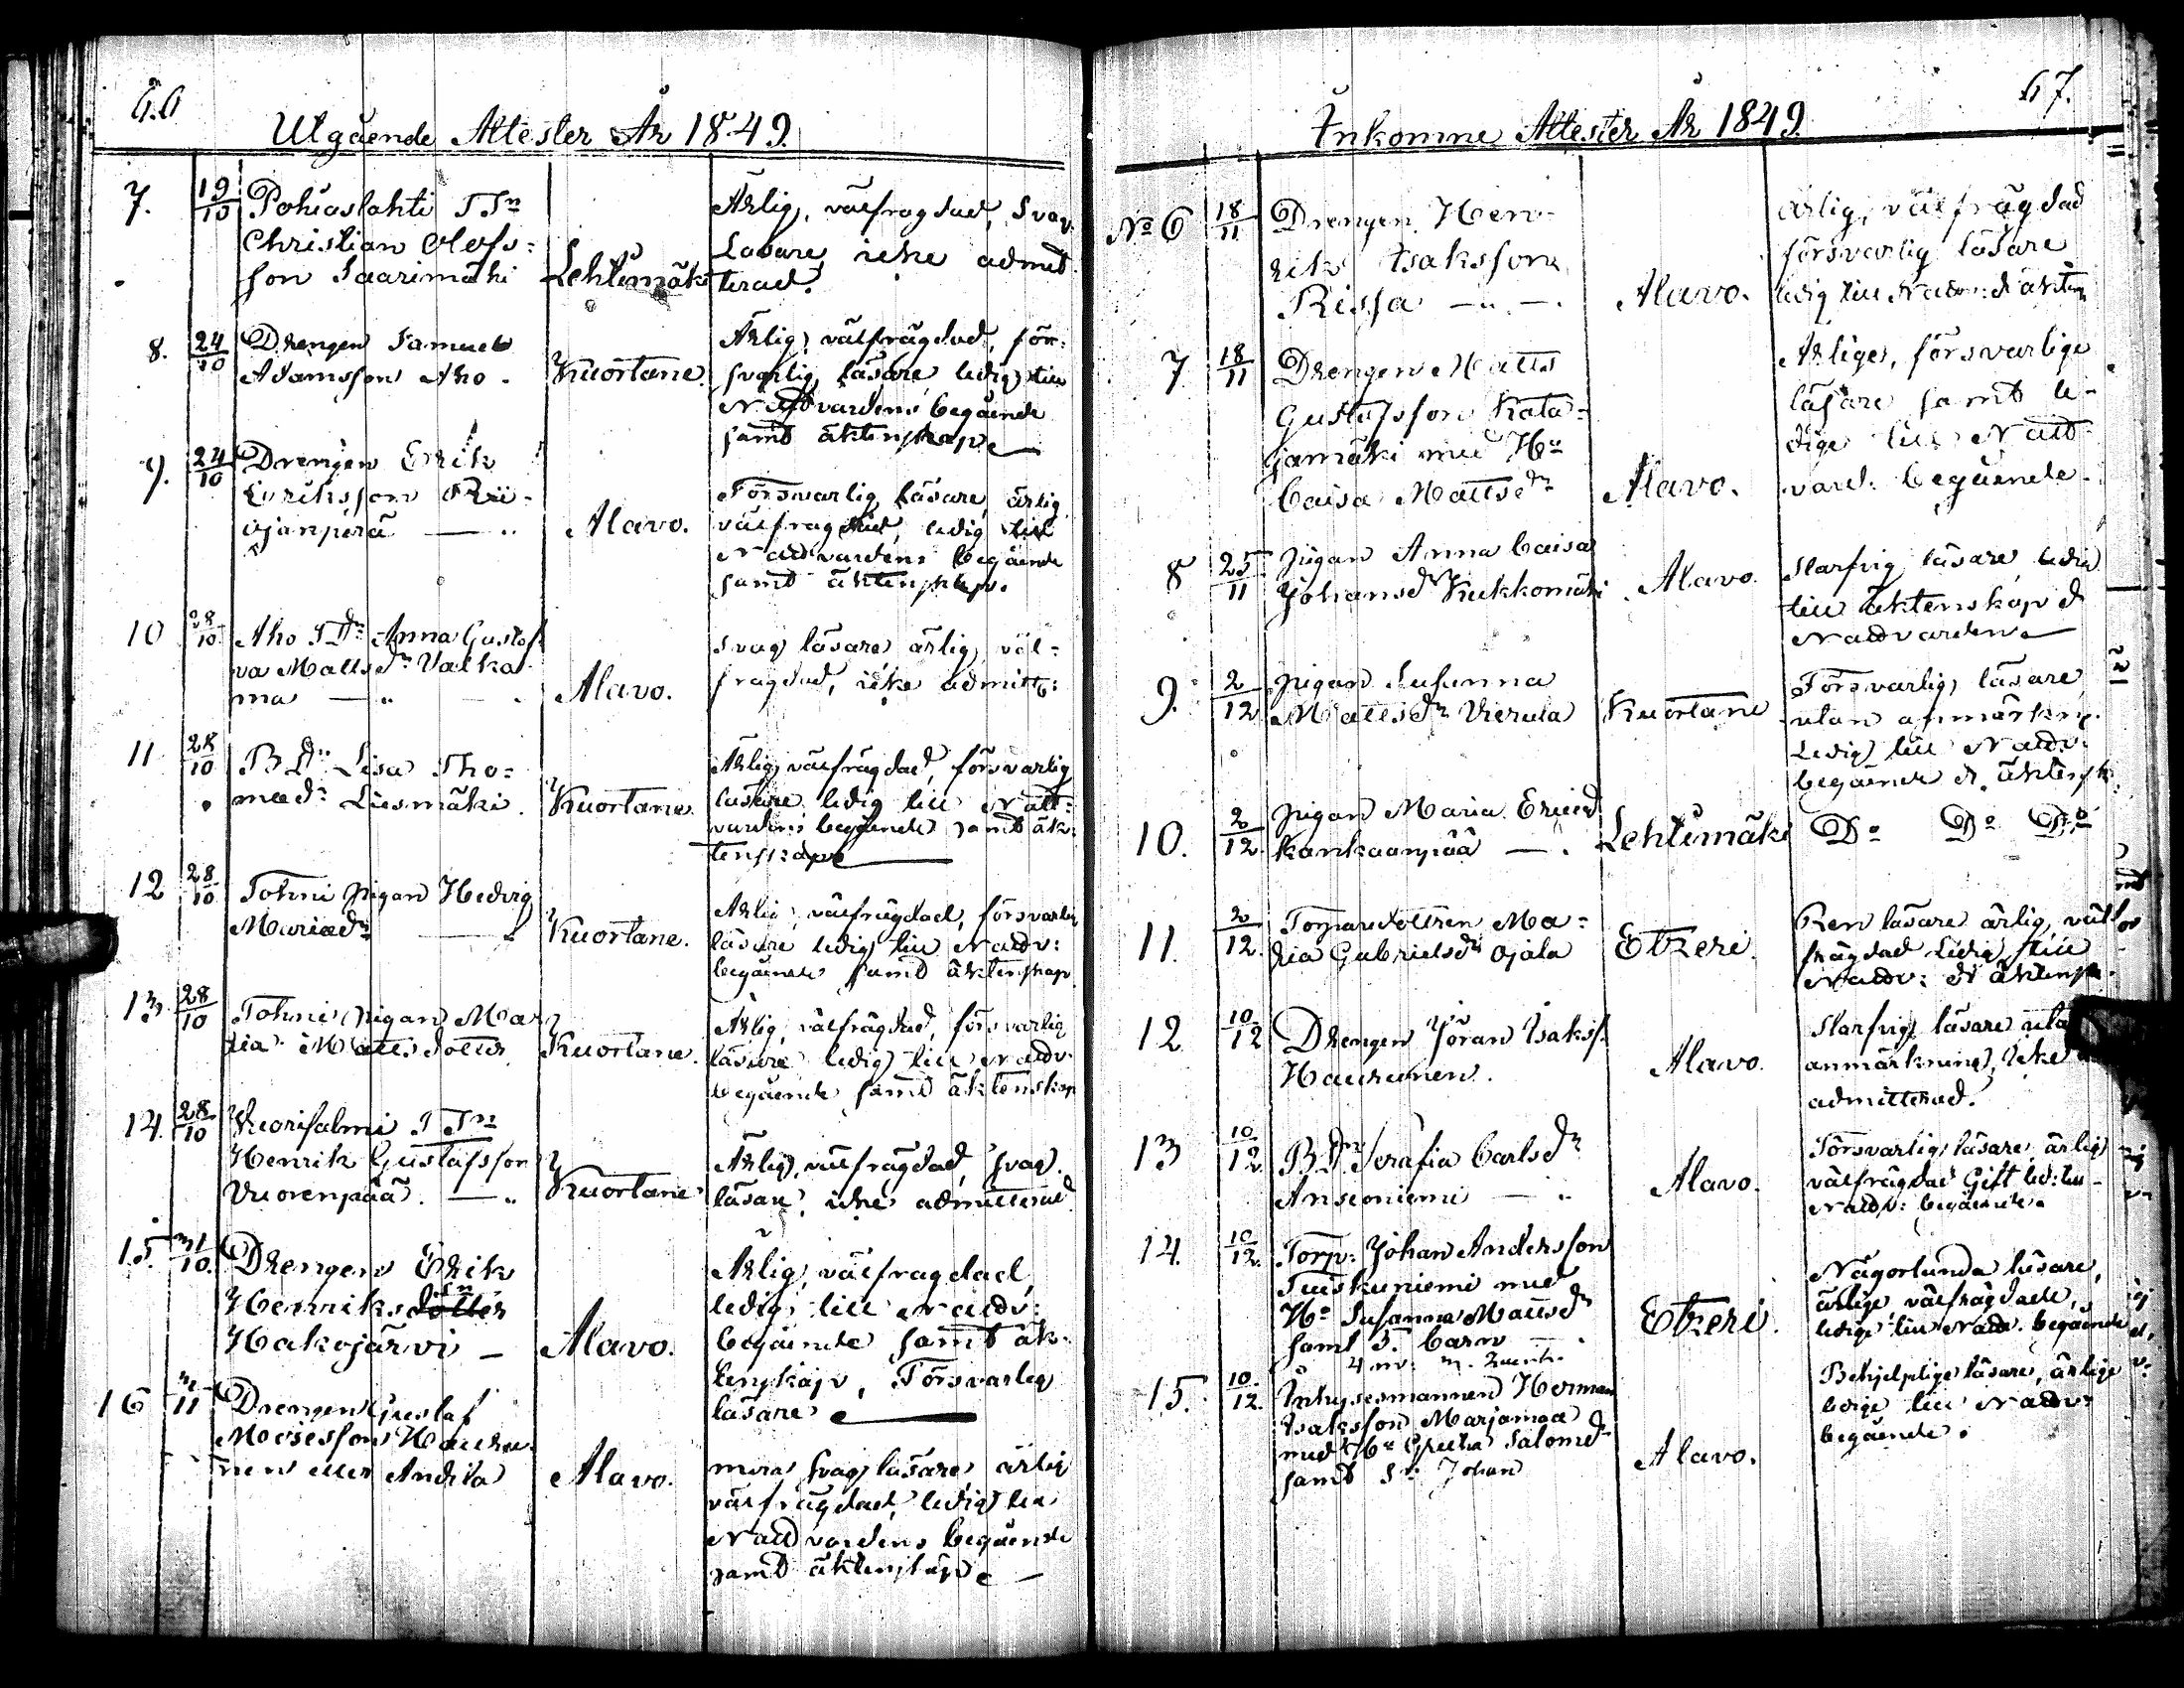 66
Utgående Attester År 1849.
7. 19/10 Pohiaslahti TSn
Christian Olofs=
son Saarimäki
Lehtimäki
Ärlig, välfrägdad, svag
Läsare, icke admit
terad.
8. 24/10 Drengen Samuel
Adamsson Aho.
Kuortane.
Ärlig, välfrägdad, för-
svarlig läsare ledig till
Nattvardens begående
samt äktenskap
9. 24/10 Drengen Erik
Eriksson
ojanperä — „
Alavo.
Försvarlig läsare, ärlig
välfrägdad, ledig till
Nattvardens begående
samt äktenskap.
10 28/10 Aho TDr Anna Gustaf
va Mattsdr Valka
ma — „ .
Alavo.
Svag läsare ärlig, väl=
frägdad, icke admitt:
11 28/10 BDr Lisa Tho=
masdr Liesmäki.
Kuortane.
Ärlig, välfrägdad, försvarlig
läsare ledig till Natt=
vardens begående samt äk-
tenskap
12 28/10 Tohni pigan Hedvig
Mariædr —
Kuortane.
Ärlig, välfrägdad, försvarlig
läsare ledig till Nattv:
begående samt äktenskap
13 28/10 Tohni pigan Ma
ria Matts dotter
Kuortane.
Ärlig, välfrägdad, försvarlig
läsare ledig till Nattv.
begående samt äktenskap
14. 28/10 Kuorisalmi TSn
Henrik Gustafsson
Vuorenpää. — „
Kuortane
Ärlig, välfrägdad, svag
läsare, icke admitterad
15. 31/10 Drengen Erik
Henriks dotter sn
Hakojärvi —
Alavo.
Ärlig, välfrägdad,
ledig till Nattv:
begående samt äk-
tenskap, Försvarlig
läsare
16 3/11 Drengen Gustaf
Moisesson Hauru
nen eller Andila
Alavo.
mera svag läsare ärlig
välfrägdad, ledig till
Nattvardens begående
samt äktenskap —
67.
Inkomne Attester År 1849.
No 6 18/11 Drengen Hen-
rik Isaksson
Rissa — „ — .
Alavo.
ärlig, välfrägdad
försvarlig läsare
ledig till Nattv: & äkten
7 18/11 Drengen Matts
Gustafsson Kata=
jamäki med Hu
Caisa Mattsdr
Alavo.
Ärlige, försvarlige
läsare samt le-
dige till Natt-
vard: begående.
8 25/11 pigan Anna Caisa
Johansdr Kukkomäki
Alavo.
Slarfvig läsare, ledig
till äktenskap &
Nattvarden
9. 2/12 pigan Susanna
Mattsdr Vierula
Kuortane
Försvarlig läsare
utan anmärkng.
Ledig till Nattv:
begående & äktensk:
10. 2/12 pigan Maria Ericsd
Kankaanpää — .
Lehtimäki
Do Do Do
11. 2/12 Torparedottren Ma=
ria Gabrielsdr Ojala
Etzeri.
Ren läsare ärlig, väl
frägdad Ledig till
Nattv: & äktensk.
12 10/12 Drengen Jöran Isakss.
Haurunen.
Alavo.
Slarfvig läsare utan
anmärkning, icke
admitterad.
13 10/12 BDr Serafia Carlsdr
Anseoniemi — „
Alavo.
Försvarlig läsare ärlig
välfrägdad Gift led: till
Nattv: begående.
14. 10/12 Torp: Johan Andersson
Tuiskuniemi med
Hu Susanna Mattsdr
samt 5. barn — .
Etzeri.
Någorlunda läsare,
ärlige, välfrägdade,
ledige till Nattv. begående
15. 10/12 Inhysesmannen Herman
Isaksson Marjamaa
med Hu Greta Salomsdr
samt Sn Johan
Alavo.
Behjelplige läsare, ärlige
ledige till Nattv:
begående.